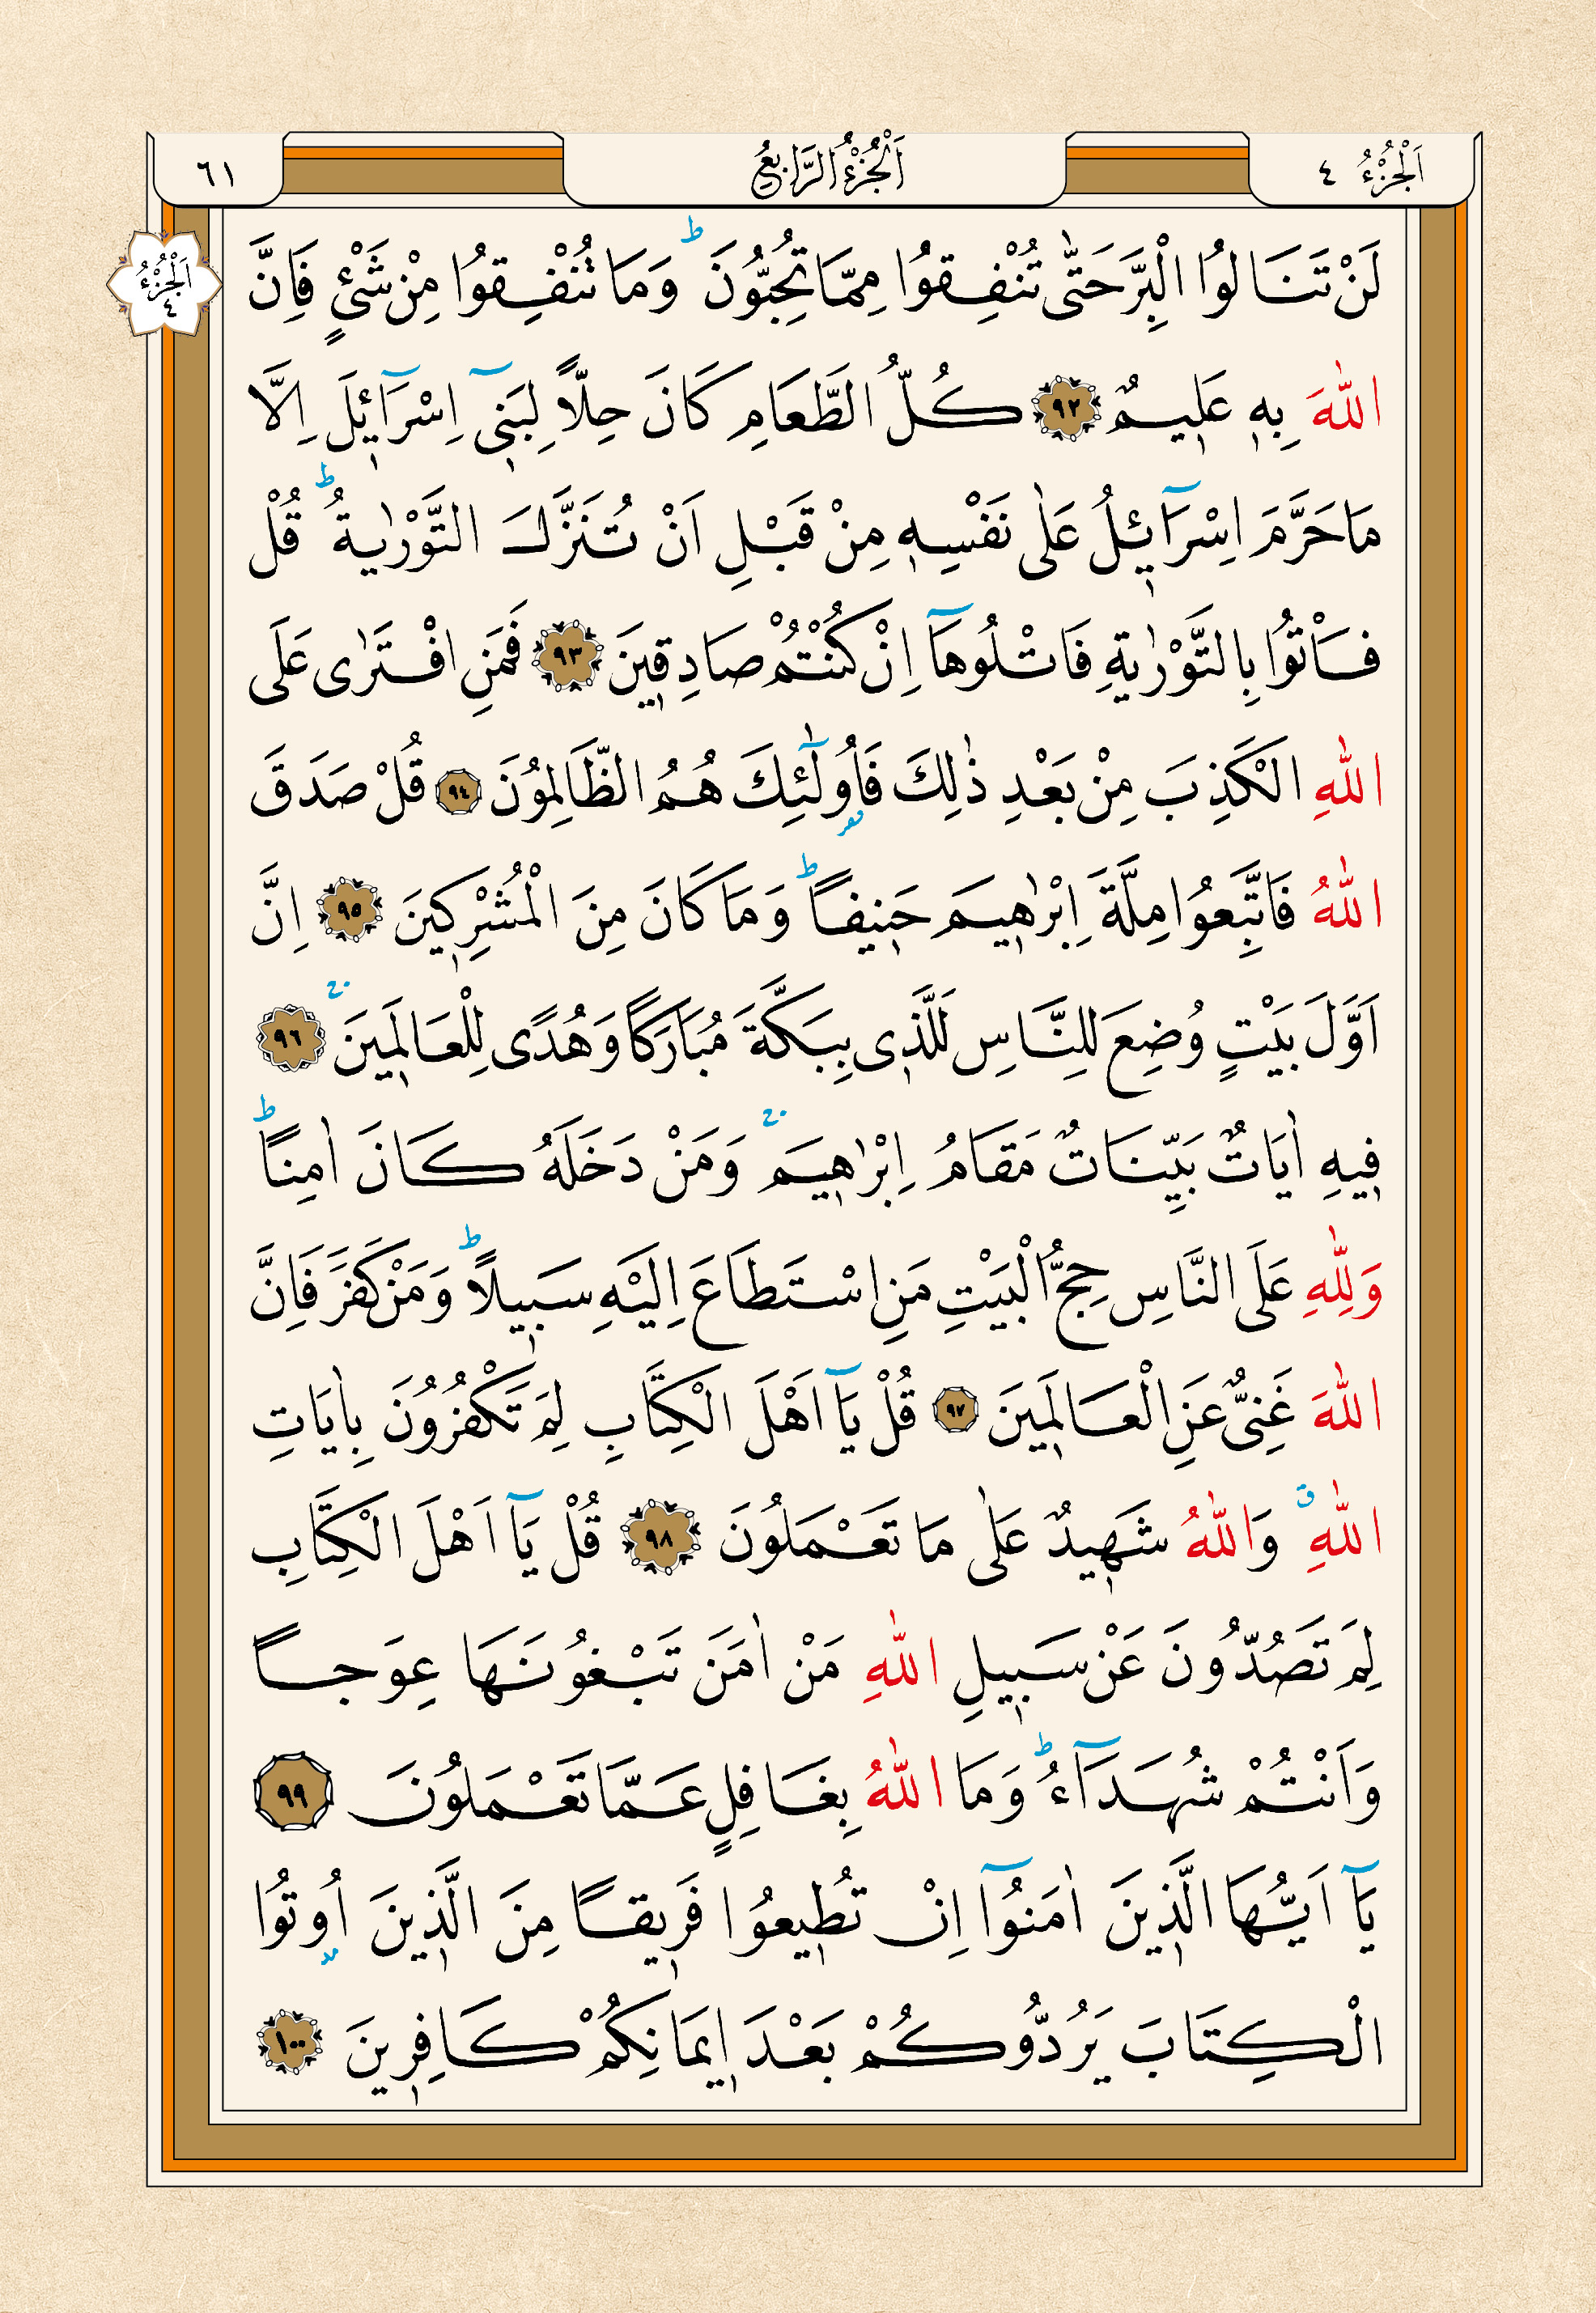 اَلْجُزْءُ ٤
اَلْجُزْءُ الرَّابِعُ
٦١
لَنْ تَنَالُوا الْبِرَّ حَتّٰى تُنْفِقُوا مِمَّا تُحِبُّونَ ؕ وَمَا تُنْفِقُوا مِنْ شَيْءٍ فَاِنَّ
اَلْجُزْءُ
٤
اللّٰهَ بِهٖ عَلٖيمٌ ٩٢ كُلُّ الطَّعَامِ كَانَ حِلًّا لِبَنٖٓى اِسْرَٓائٖلَ اِلَّا
مَا حَرَّمَ اِسْرَٓائٖلُ عَلٰى نَفْسِهٖ مِنْ قَبْلِ اَنْ تُنَزَّلَ التَّوْرٰيةُ ؕ قُلْ
فَأْتُوا بِالتَّوْرٰيةِ فَاتْلُوهَٓا اِنْ كُنْتُمْ صَادِقٖينَ ٩٣ فَمَنِ افْتَرٰى عَلَى
اللّٰهِ الْكَذِبَ مِنْ بَعْدِ ذٰلِكَ فَاُو۬لٰٓئِكَ هُمُ الظَّالِمُونَ ٩٤ قُلْ صَدَقَ
اللّٰهُ فَاتَّبِعُوا مِلَّةَ اِبْرٰهٖيمَ حَنٖيفًا ؕ وَمَا كَانَ مِنَ الْمُشْرِكٖينَ ٩٥ اِنَّ
اَوَّلَ بَيْتٍ وُضِعَ لِلنَّاسِ لَلَّذٖى بِبَكَّةَ مُبَارَكًا وَهُدًى لِلْعَالَمٖينَ ۚ ٩٦
فٖيهِ اٰيَاتٌ بَيِّنَاتٌ مَقَامُ اِبْرٰهٖيمَ ۚ وَمَنْ دَخَلَهُ كَانَ اٰمِنًا ؕ
وَلِلّٰهِ عَلَى النَّاسِ حِجُّ الْبَيْتِ مَنِ اسْتَطَاعَ اِلَيْهِ سَبٖيلًا ؕ وَمَنْ كَفَرَ فَاِنَّ
اللّٰهَ غَنِىٌّ عَنِ الْعَالَمٖينَ ٩٧ قُلْ يَٓا اَهْلَ الْكِتَابِ لِمَ تَكْفُرُونَ بِاٰيَاتِ
اللّٰهِ ۗ وَاللّٰهُ شَهٖيدٌ عَلٰى مَا تَعْمَلُونَ ٩٨ قُلْ يَٓا اَهْلَ الْكِتَابِ
لِمَ تَصُدُّونَ عَنْ سَبٖيلِ اللّٰهِ مَنْ اٰمَنَ تَبْغُونَهَا عِوَجًا
وَاَنْتُمْ شُهَدَٓاءُ ؕ وَمَا اللّٰهُ بِغَافِلٍ عَمَّا تَعْمَلُونَ ٩٩
يَٓا اَيُّهَا الَّذٖينَ اٰمَنُٓوا اِنْ تُطٖيعُوا فَرٖيقًا مِنَ الَّذٖينَ اُو۫تُوا
الْكِتَابَ يَرُدُّوكُمْ بَعْدَ اٖيمَانِكُمْ كَافِرٖينَ ١٠٠